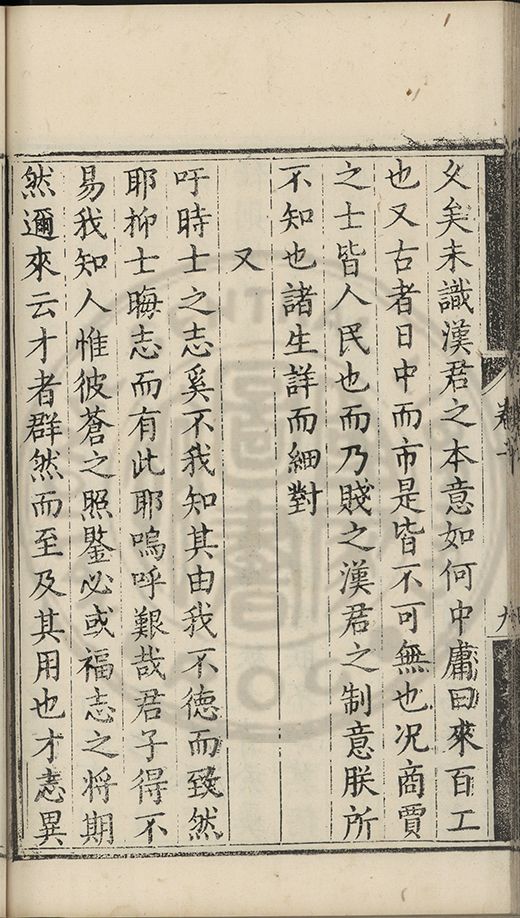 久矣未識漢君之本意如何中庸曰來百工
也又古者日中而市是皆不可無也况商賈
之士皆人民也而乃賤之漢君之制意朕所
不知也諸生詳而細對
又
吁時士之志奚不我知其由我不德而致然
耶抑士晦志而有此耶嗚呼艱哉君子得不
易我知人惟彼蒼之照鑒必或福志之將期
然邇來云才者群然而至及其用也才志異